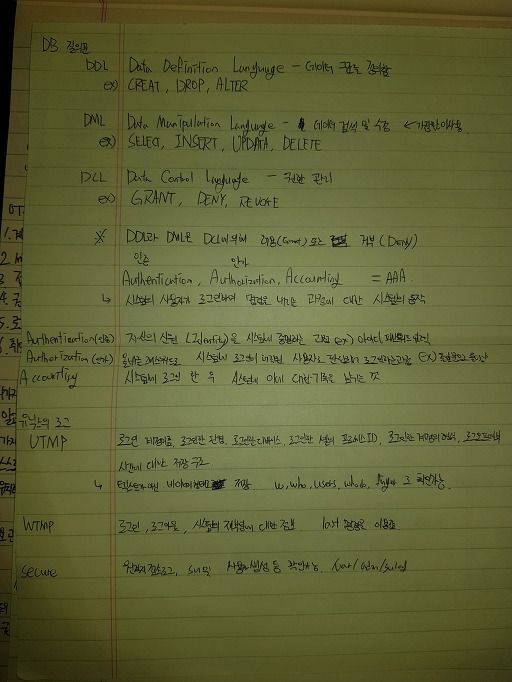 DB 질의문
DDL Data Definition Language - 데이터 구조 정의
ex) CREAT, DROP, ALTER
DML Data Manipulation Language - 데이터 검색 및 수정 ← 가장많이사용
ex) SELECT, INSERT, UPDATA, DELETE
DCL Data Control Language - 권한 관리
ex) GRANT, DENY, REVOKE
※ DDL과 DML은 DCL에의해 허용(Grant) 또는 거부(DENY)
인증 인가
Authentication, Authorization, Accounting = AAA.
↳ 시스템의 사용자가 로그인하여 명령을 내리는 과정에 대한 시스템의 동작
Authentication(인증) 자신의 신원(Identity)을 시스템에 증명하는 과정 ex) 아이디, 패스워드
Authorization(인가) 시스템에 로그인이 허락된 사용자로 ex)
Accounting 시스템에 로그인 한 후 시스템이 이에 대한 기록을 남기는 것
유닉스의 로그
UTMP 로그인 계정이름, 로그인한 환경, 로그인한 디바이스, 로그인한 셸의 프로세스ID, 로그인한 계정의 형식,
시간에 대한 저장 구조
↳ 텍스트가 아닌 바이너리형태로 저장 w, who, users, whodo, finger 로 확인가능
WTMP 로그인, 로그아웃, 시스템의 재부팅에 대한 정보 last 명령을 이용
secure 원격지 접속로그, su 및 사용자 생성 등 확인가능. /var/adm/sulog